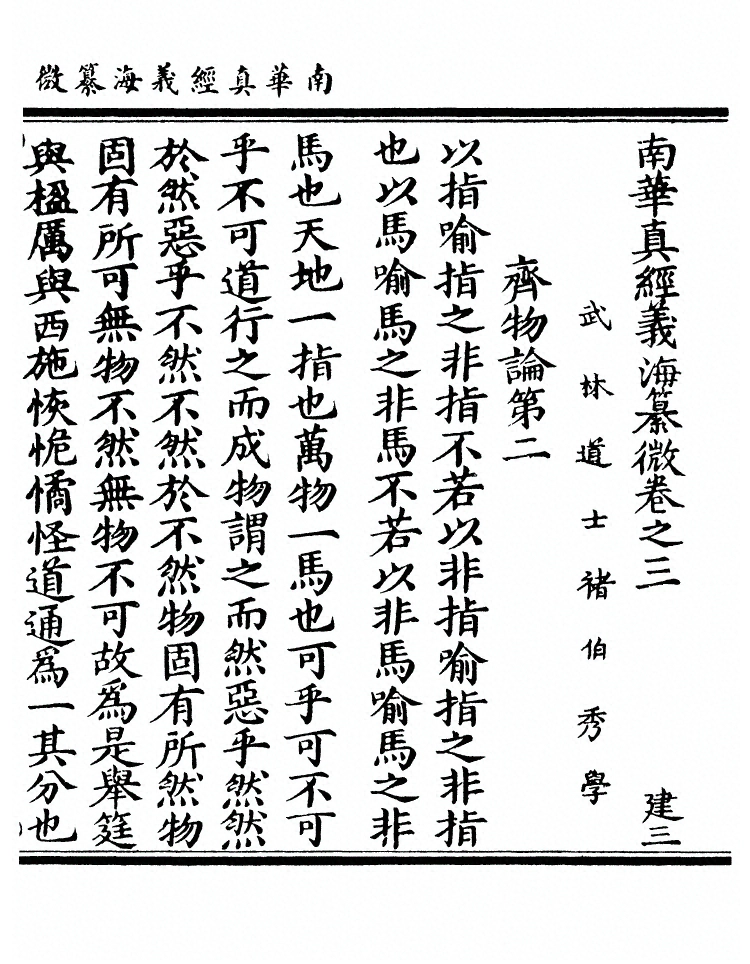 南華真經義海纂微
南華真經義海纂微卷之三
建三
武林道士褚伯秀學
齊物論第二
以指喻指之非指不若以非指喻指之非指
也以馬喻馬之非馬不若以非馬喻馬之非
馬也天地一指也萬物一馬也可乎可不可
乎不可道行之而成物謂之而然惡乎然然
於然惡乎不然不然於不然物固有所然物
固有所可無物不然無物不可故為是舉筳
與楹厲與西施恢恑憰怪道通為一其分也